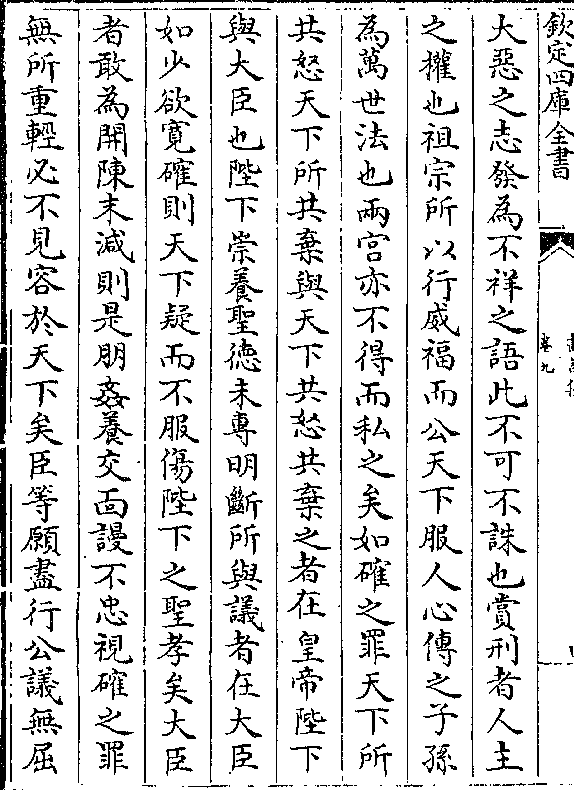 欽定四庫全書
卷九
大惡之志發為不祥之語此不可不誅也賞刑者人主
之權也祖宗所以行威福而公天下服人心傳之子孫
為萬世法也兩宮亦不得而私之矣如確之罪天下所
共怒天下所共棄與天下共怒共棄之者在皇帝陛下
與大臣也陛下崇養聖德未專明斷所與議者在大臣
如少欲寛確則天下疑而不服傷陛下之聖孝矣大臣
者敢為開陳末減則是朋姦養交面謾不忠視確之罪
無所重輕必不見容於天下矣臣等願盡行公議無屈